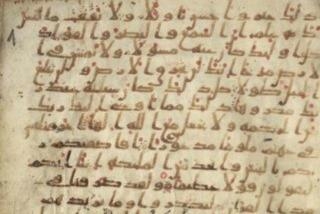 ذلك خير واحسن تاويلا ولا تقف ما ليس
لك به علم ان السمع والبصر والفواد
كل اولئك كان عنه مسولا ولا تمش في ا
لارض مرحا انك لن تخرق الارض ولن تبلغ
الجبال طولا كل ذلك كان سيئه عند ر
بك مكروها ذلك مما اوحى اليك ربك
من الحكمه ولا تجعل مع الله الها اخر فتلقى
في جهنم ملوما مدحورا افاصفيكم ر
بكم بالبنين واتخذ من الملئكه انثا انكم
لتقولون قولا عظيما ولقد صرفنا في
هذا القران ليذكروا وما يزيدهم